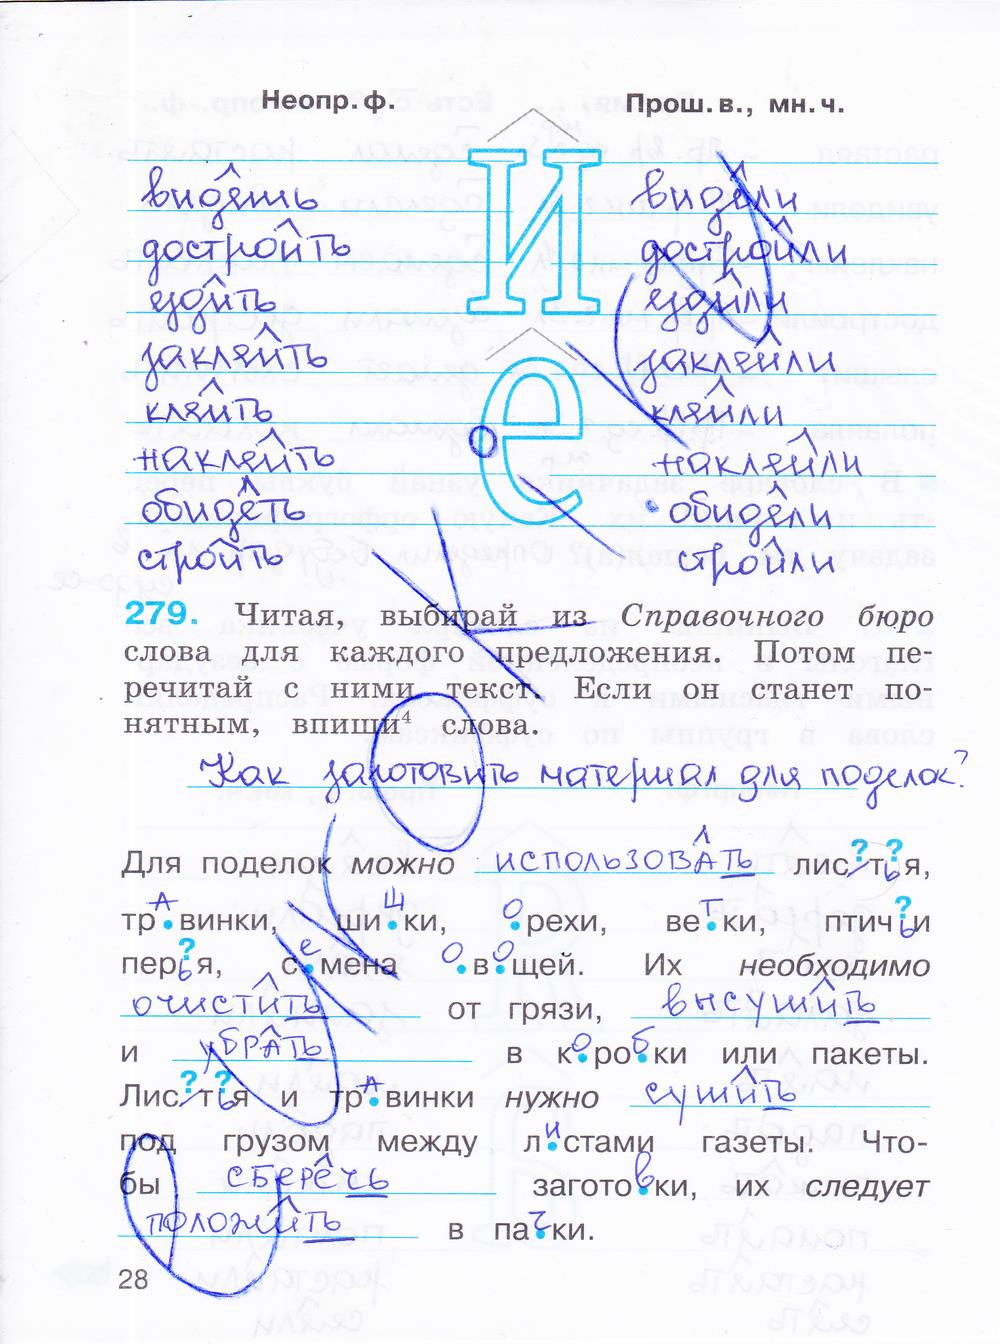 Неопр. ф. Прош. в., мн. ч.
и
видешь видели
достроить достроили
ездить ездили
заклеить заклеили
е
клеить клеили
наклеить наклеили
обидеть обидели
строить строили
279. Читая, выбирай из Справочного бюро
слова для каждого предложения. Потом пе-
речитай с ними текст. Если он станет по-
нятным, впиши⁴ слова.
Как заготовить материал для поделок?
Для поделок можно использовать лис?т?ья,
травинки, шишки, орехи, ветки, птич?ьи
пер?ья, семена овощей. Их необходимо
очистить от грязи, высушить
и убрать в коробки или пакеты.
Лис?т?ья и травинки нужно сушить
под грузом между листами газеты. Что-
бы сберечь заготовки, их следует
положить в пачки.
28